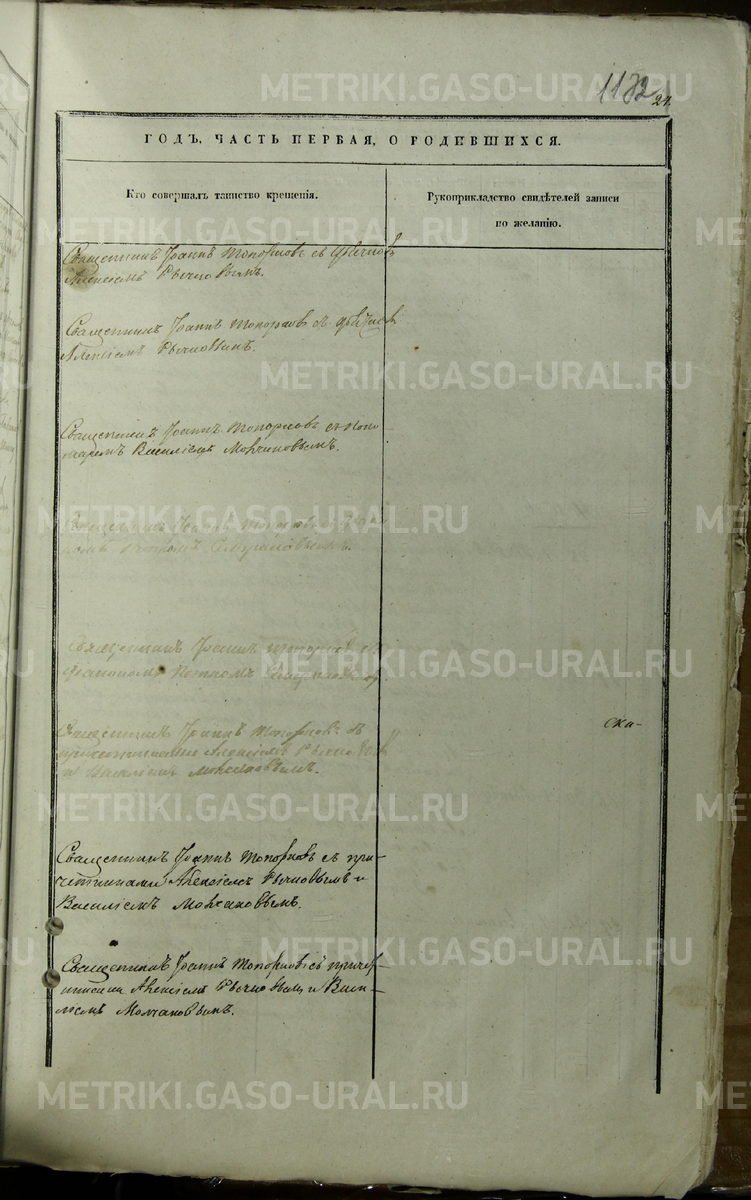 1182
24.
ГОДЪ, ЧАСТЬ ПЕРВАЯ, О РОДИВШИХСЯ.
Кто совершалъ таинство крещенія.
Рукоприкладство свидѣтелей записи
по желанію.
Священникъ Іоаннъ Топорковъ съ дьячкомъ
Алексіемъ Рычковымъ.
Священникъ Іоаннъ Топорковъ съ дьячкомъ
Алексіемъ Рычковымъ.
Священникъ Іоаннъ Топорковъ съ поно
маремъ Василіемъ Молчановымъ.
Священникъ Іоаннъ Топорковъ
Петромъ
Священникъ Іоаннъ Топорковъ съ
діакономъ Петромъ
Священникъ Іоаннъ Топорковъ съ
причетниками Алексіемъ Рычковымъ
и Василіемъ Молчановымъ.
ска-
Священникъ Іоаннъ Топорковъ съ при-
четниками Алексіемъ Рычковымъ и
Василіемъ Молчановымъ.
Священникъ Іоаннъ Топорковъ съ причет-
никами Алексіемъ Рычковымъ и Васи-
ліемъ Молчановымъ.
METRIKI.GASO-URAL.RU